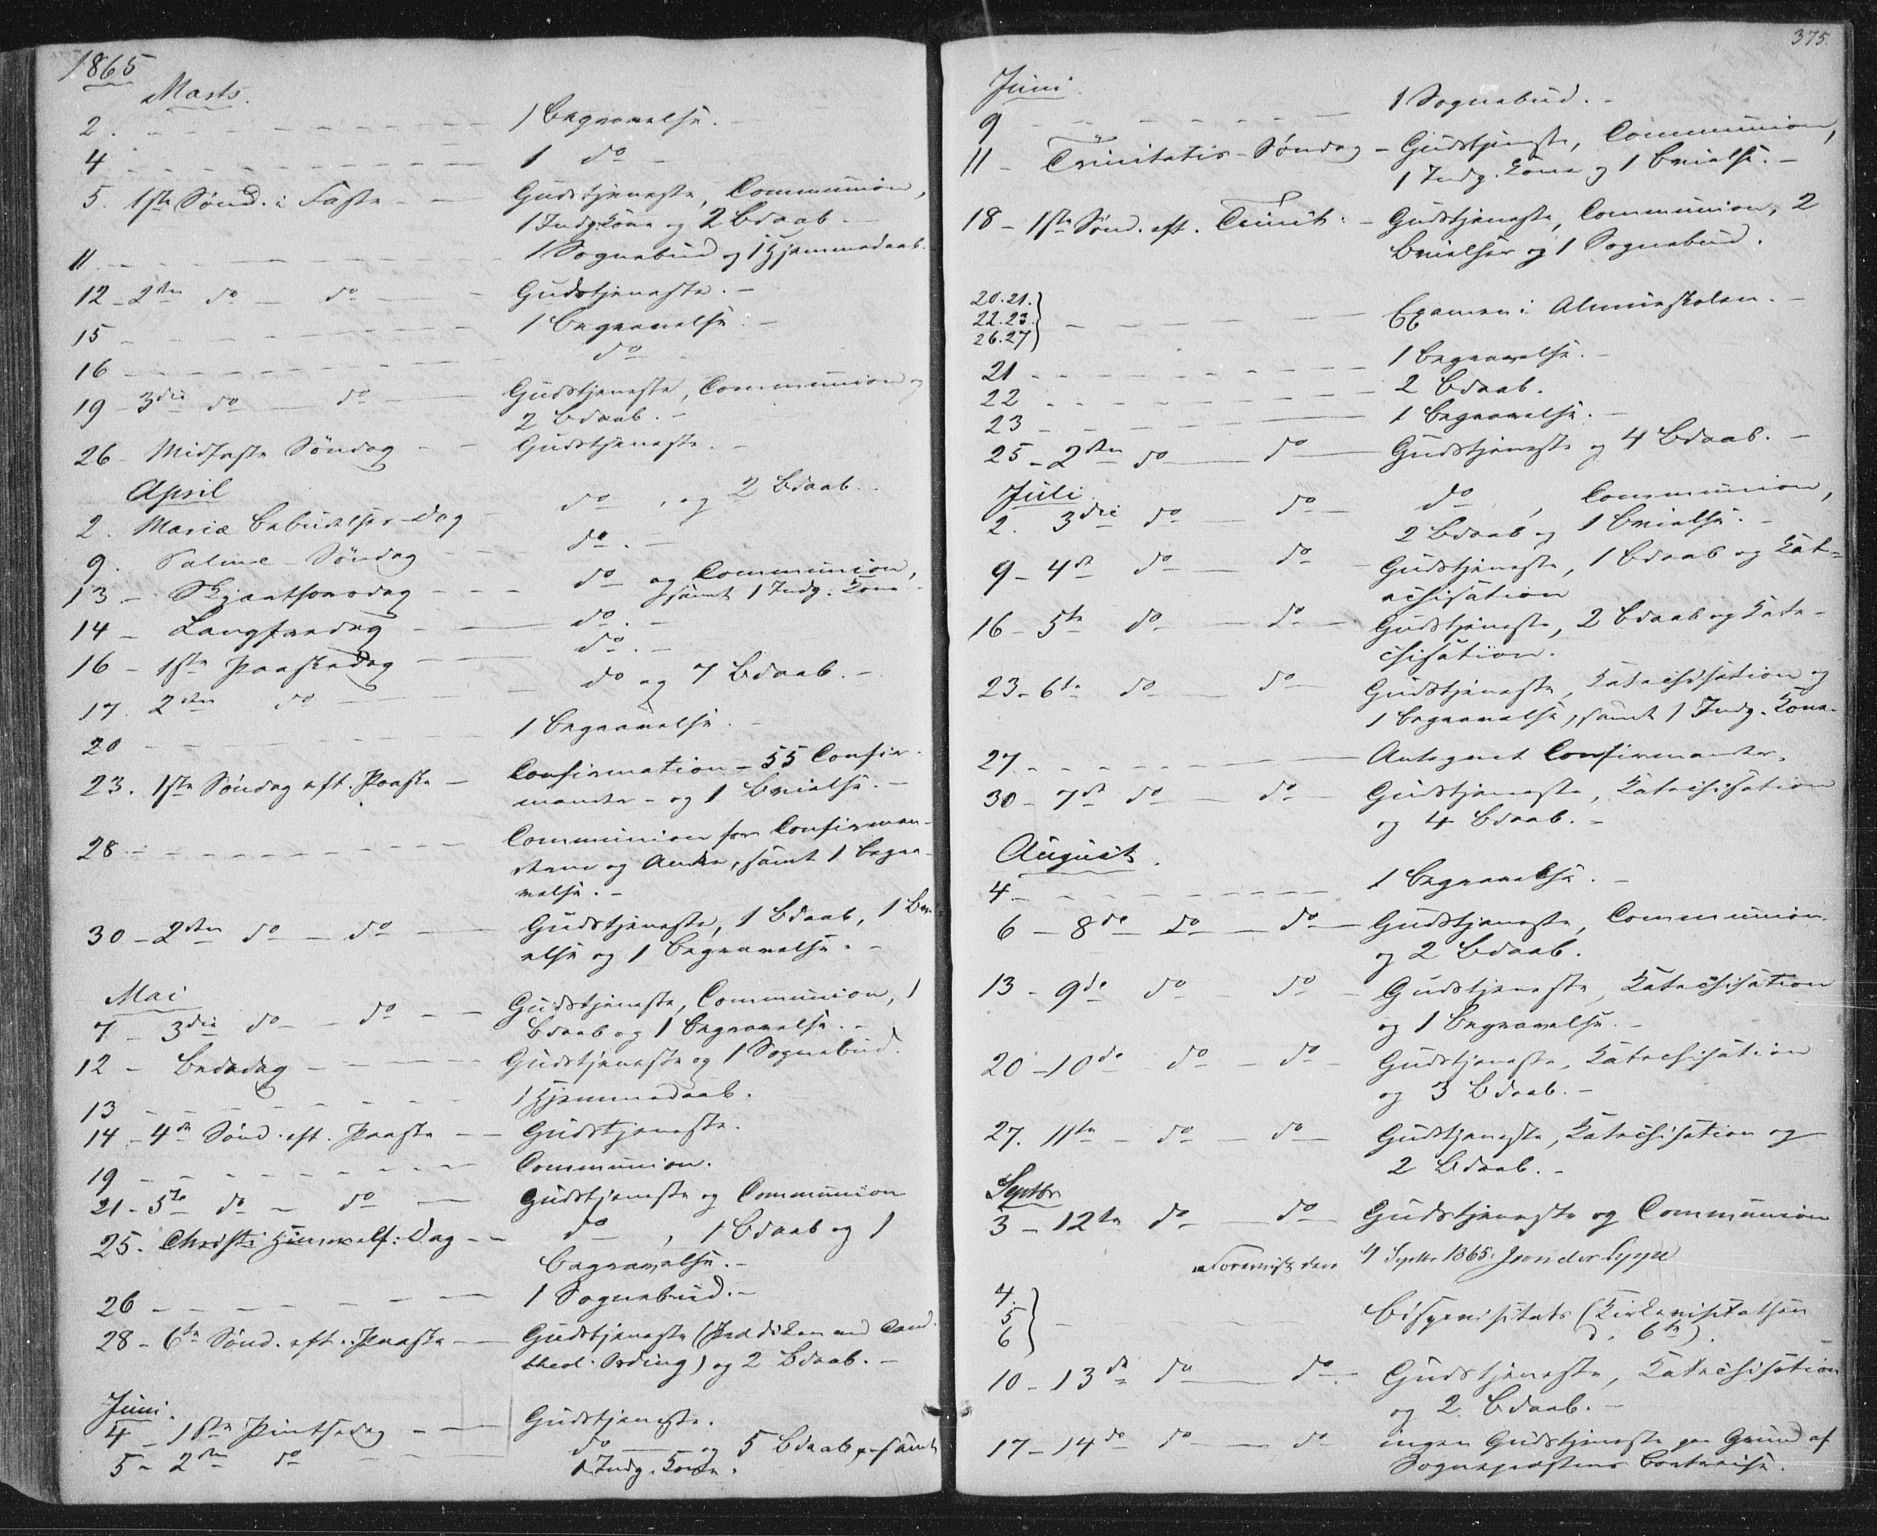 1865
Marts.
2. - - - 1 Begravelse. -
4 - - - 1 do -
5. 1ste Sønd. i Faste - - Gudstjeneste, Communion,
1 Indg. Kone og 2 Bdaab. -
11 - - - 1 Sognebud og 1 Hjemmedaab.
12 - 2den do - do - - Gudstjeneste. -
15 - - - 1 Begravelse. -
16 - - - do -
19 - 3die do - do - - Gudstjeneste, Communion og
2 Bdaab. -
26 - Midfaste Søndag - - Gudstjeneste. -
April
2. Mariæ Bebudelses-Dag - do, og 2 Bdaab. -
9. Palme-Søndag - - do. -
13. - Skjærthorsdag - - - do og Communion,
samt 1 Indg. Kone -
14 - Langfredag - - do. -
16 - 1ste Paaskedag - - do. -
17. 2den do - - do og 7 Bdaab. -
20 - - - 1 Begravelse. -
23. 1ste Søndag eft. Paaske - Confirmation - 55 Confir-
mander - og 1 Vielse. -
28 - - - Communion for Confirman-
derne og Andre, samt 1 Begra-
velse. -
30 - 2den do - do - - Gudstjeneste, 1 Bdaab, 1 Bvi-
else og 1 Begravelse. -
Mai
7 - 3die do - do - - Gudstjeneste, Communion, 1
Bdaab og 1 Begravelse. -
12 - Bededag - - - Gudstjeneste og 1 Sognebud.
13 - - - 1 Hjemmedaab.
14 - 4de Sønd. eft. Paaske - - Gudstjeneste.
19 - - - Communion.
21 - 5te do - do - Gudstjeneste og Communion
25. Christi Himmelf: Dag - - do, 1 Bdaab og 1
Begravelse. -
26 - - - 1 Sognebud. -
28 - 6te Sønd. eft. Paaske - - Gudstjeneste (Prædiken ved Cand.
theol. Ording) og 2 Bdaab. -
Juni.
4 - 1ste Pintsedag - - Gudstjeneste.
5 - 2den do - - do - og 5 Bdaab, samt
1 Indg. Kone.
375.
Juni.
9 - - - 1 Sognebud. -
11 - Trinitatis-Søndag - Gudstjeneste, Communion,
1 Indg. Kone og 1 Bvielse. -
18 - 1ste Sønd. eft. Trinit: - Gudstjeneste, Communion, 2
Bvielser og 1 Sognebud.
20.21.
22.23.
26.27 } - - - Examen i Almueskolen. -
21 - - - 1 Begravelse. -
22 - - - 2 Bdaab.
23 - - - 1 Begravelse. -
25 - 2den do - do - Gudstjeneste og 4 Bdaab. -
Juli.
2. 3die do - do - do, Communion,
2 Bdaab og 1 Bvielse. -
9 - 4de do - do - Gudstjeneste, 1 Bdaab og Kat-
echisation
16 - 5te do - do - Gudstjeneste, 2 Bdaab og Kate-
chisation.
23 - 6te do - do - Gudstjeneste, Katechisation og
1 Begravelse, samt 1 Indg. Kone.
27. - - - Antegnet Confirmander.
30 - 7de do - do - Gudstjeneste, Katechisation
og 4 Bdaab. -
August.
4 - - - 1 Begravelse. -
6 - 8de do - do - Gudstjeneste, Communion
og 2 Bdaab.
13 - 9de do - do - Gudstjeneste, Katechisation
og 1 Begravelse. -
20 - 10de do - do - Gudstjeneste, Katechisation
og 3 Bdaab. -
27. 11te - do - do - Gudstjeneste, Katechisation og
2 Bdaab. -
Septbr
3 - 12te do - do - Gudstjeneste og Communion
Foreviist den 4 Septbr 1865.
4.
5
6 } - - - Bispevisitats (Kirkevisitatsen
d. 6te).
10 - 13de do - do - Gudstjeneste, Katechisation
og 2 Bdaab. -
17 - 14de do - do - ingen Gudstjeneste paa Grund af
Sognepræstens Bortreise.